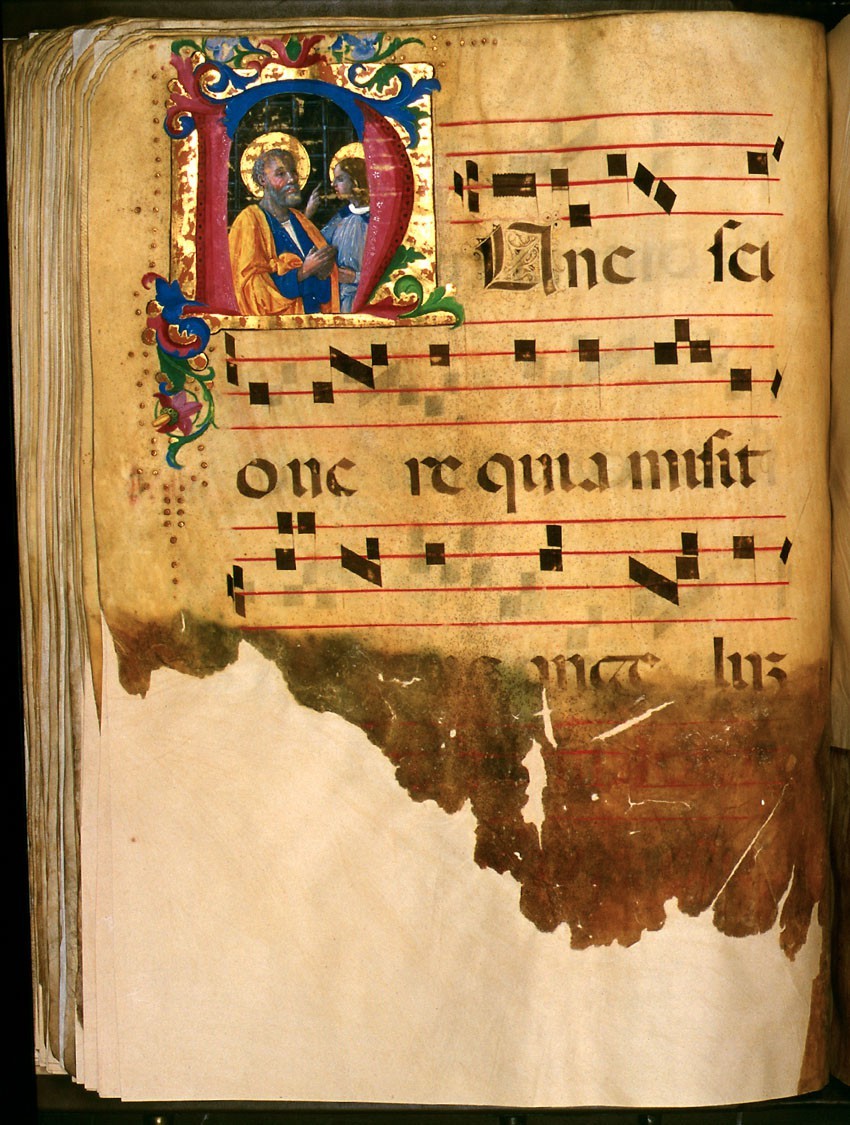 NUnc sci
o ue re quia misit
ange luꝫ